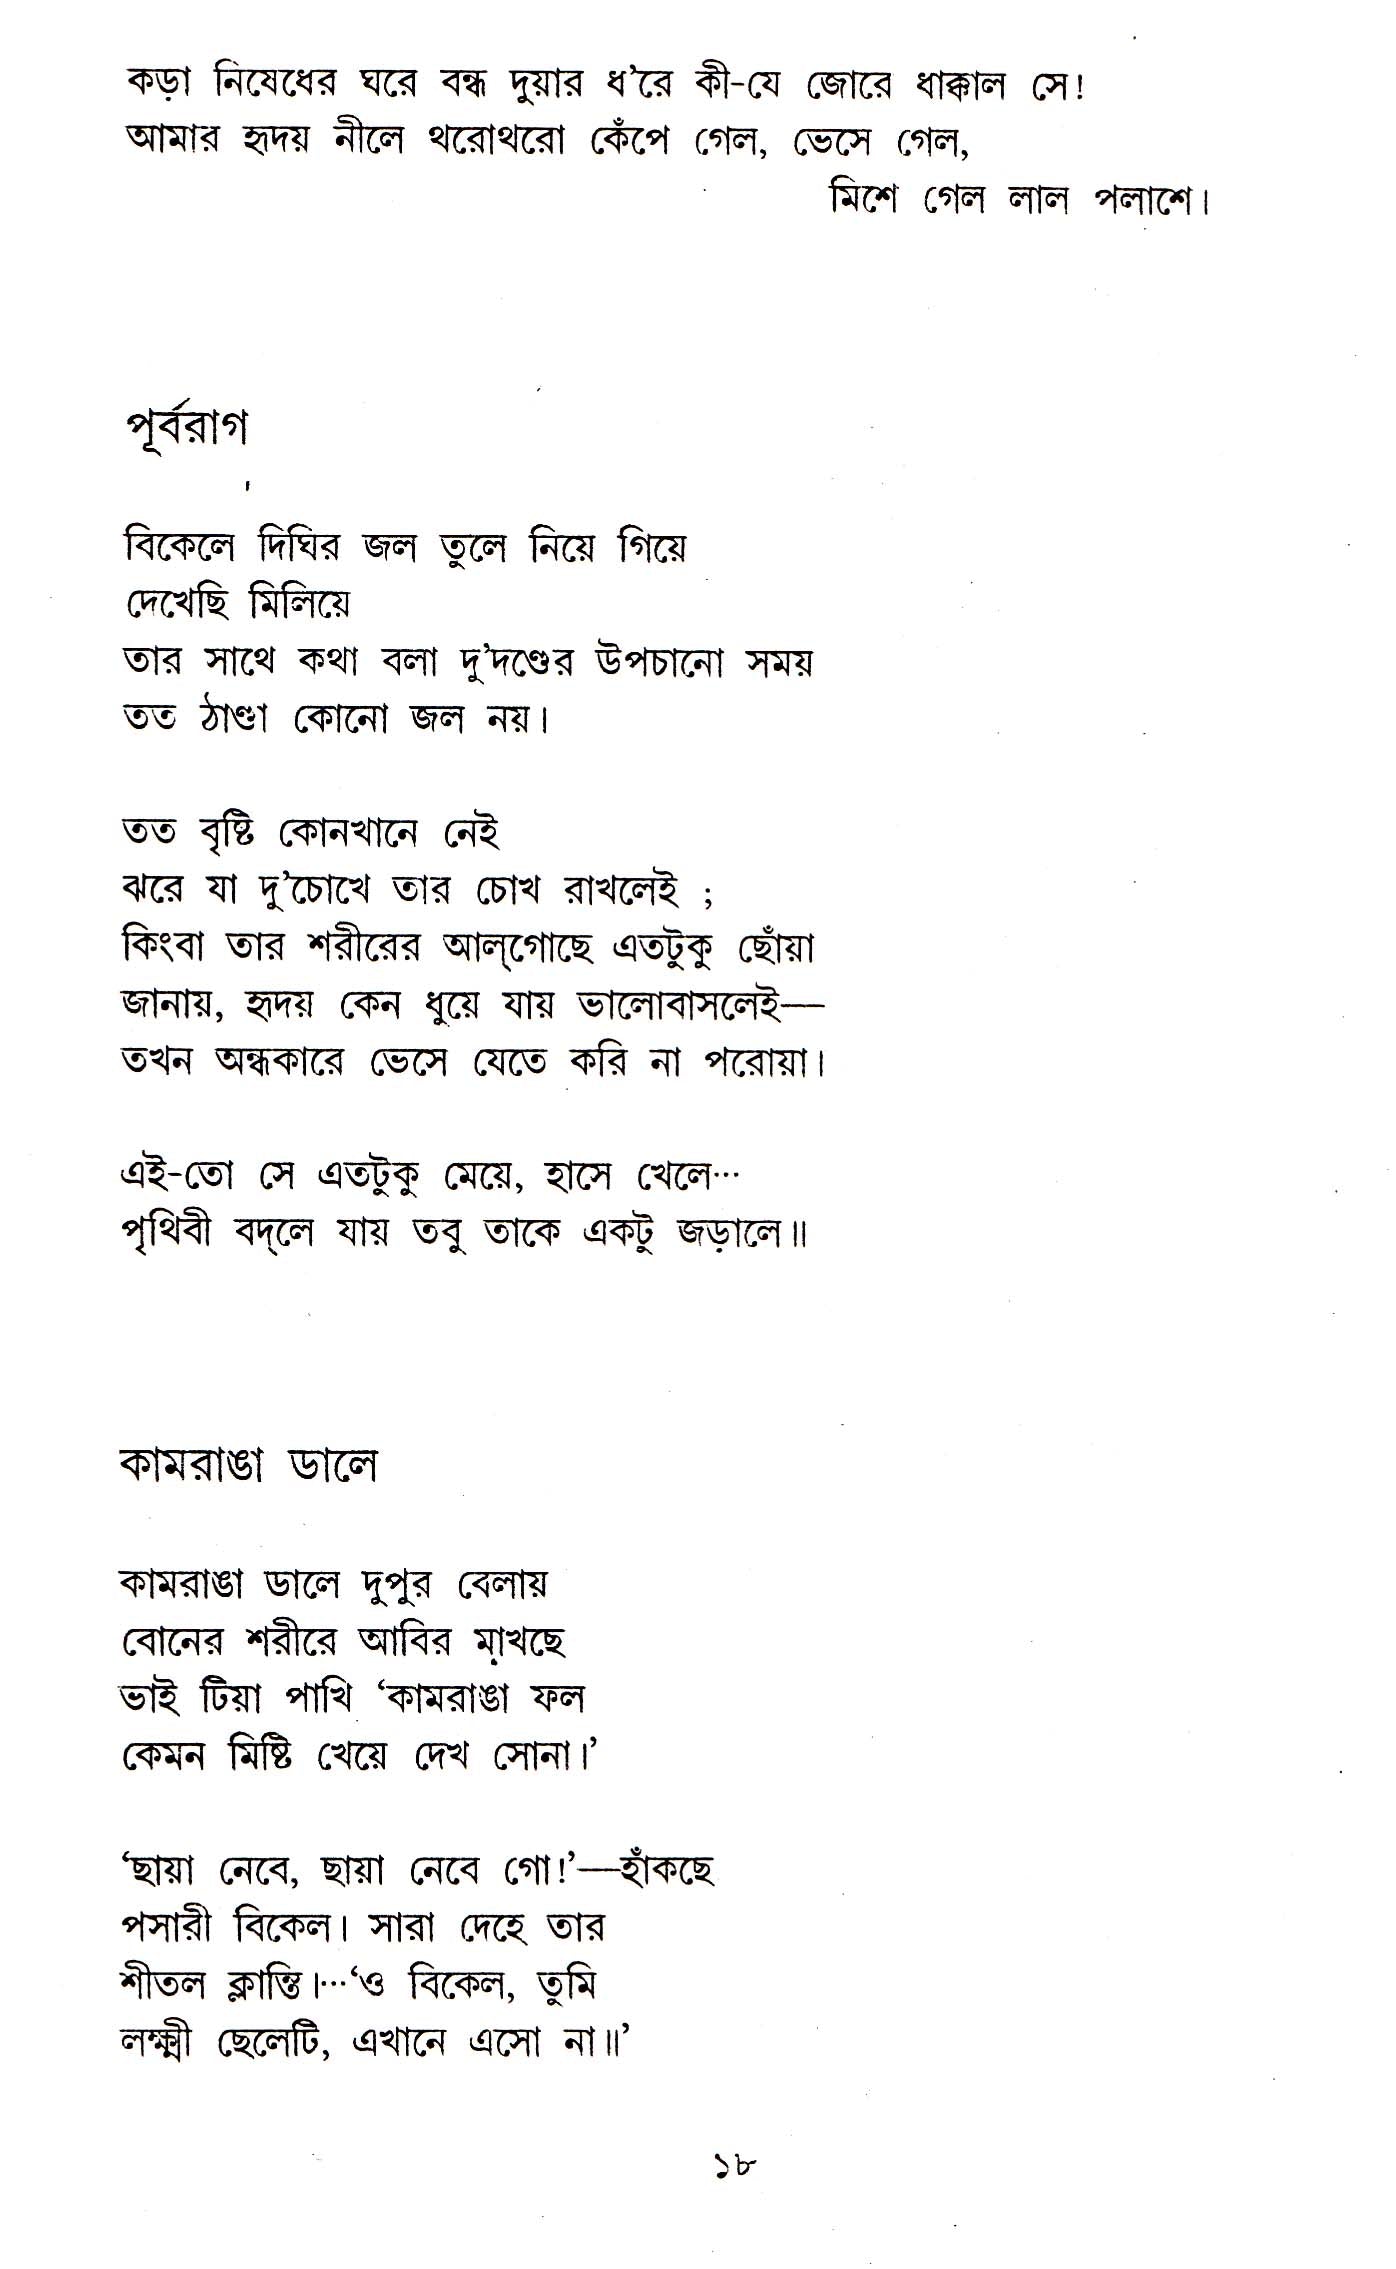 কড়া নিষেধের ঘরে বন্ধ দুয়ার ধ'রে কী-যে জোরে ধাক্কাল সে!
আমার হৃদয় নীলে থরোথরো কেঁপে গেল, ভেসে গেল,
মিশে গেল লাল পলাশে।
পূর্বরাগ
বিকেলে দিঘির জল তুলে নিয়ে গিয়ে
দেখেছি মিলিয়ে
তার সাথে কথা বলা দু'দণ্ডের উপচানো সময়
তত ঠাণ্ডা কোনো জল নয়।
তত বৃষ্টি কোনখানে নেই
ঝরে যা দু'চোখে তার চোখ রাখলেই ;
কিংবা তার শরীরের আল্‌গোছে এতটুকু ছোঁয়া
জানায়, হৃদয় কেন ধুয়ে যায় ভালোবাসলেই—
তখন অন্ধকারে ভেসে যেতে করি না পরোয়া।
এই-তো সে এতটুকু মেয়ে, হাসে খেলে···
পৃথিবী বদ্‌লে যায় তবু তাকে একটু জড়ালে॥
কামরাঙা ডালে
কামরাঙা ডালে দুপুর বেলায়
বোনের শরীরে আবির মাখছে
ভাই টিয়া পাখি ‘কামরাঙা ফল
কেমন মিষ্টি খেয়ে দেখ সোনা।’
‘ছায়া নেবে, ছায়া নেবে গো!’—হাঁকছে
পসারী বিকেল। সারা দেহে তার
শীতল ক্লান্তি।···‘ও বিকেল, তুমি
লক্ষ্মী ছেলেটি, এখানে এসো না॥’
১৮